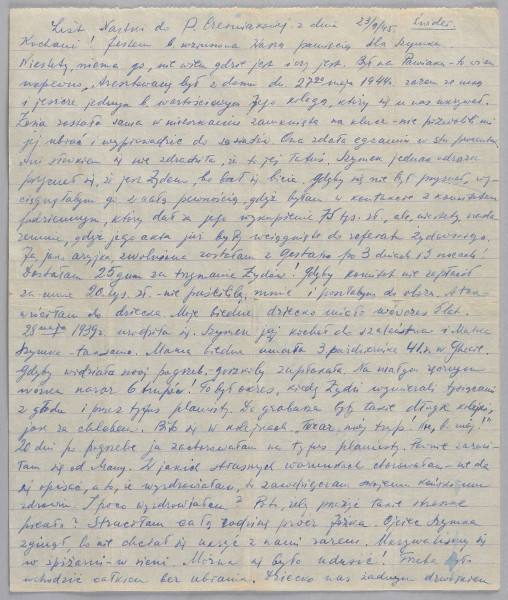 List Nastki do P. Cz. z dnia 23/9/45. Świder.
Kochani! Jestem b. wzruszona Waszą pamięcią dla Szymka.
Niestety, niema go, nie wiem gdzie jest i czy jest. Był na Pawiaku - to wiem
napewno. Aresztowany był z domu dn. 27go maja 1944r. razem ze mną
i jeszcze jednym b. wartościowym Jego kolegą, który się u nas ukrywał.
Żona została sama w mieszkaniu zamknięta na klucz - nie pozwolili mi
jej ubrać i wyprowadzić do sąsiadów. Ona zdała egzamin w stu procentach.
Ani słówkiem się nie zdradziła, że to jej Tatuś. Szymek jednak odrazu
przyznał się, że jest Żydem, bo bał się bicia. Gdyby się nie był przyznał, wy-
ciągnęłabym go z całą pewnością, gdyż byłam w kontakcie z komitetem
podziemnym, który dał za jego wykupienie 75 tys. zł., ale, niestety nada-
remnie, gdyż jego akta już były wciągnięte do referatu żydowskiego.
Ja, jako aryjka, zwolniona zostałam z Gestapo po 3 dniach i 3 nocach!
Dostałam 25 gum za trzymanie Żydów! Gdyby komitet nie zapłacił
za mnie 20 tys. zł. - nie puściliby mnie i poszłabym do obozu. A tak
wróciłam do dziecka. Moje biedne dziecko miało wówczas 5 lat.
28 maja 1939r. urodziła się. Szymek ją kochał do szaleństwa i Matka
Szymka - także. Mama biedna umarła 3 października 41r. w Ghecie.
Gdyby widziała swój pogrzeb - gorzko by zapłakała. Na małym czarnym
wózku naraz 6 trupów! To był okres, kiedy Żydzi wymierali tysiącami
z głodu i przez tyfus plamisty. Do grabarza były takie długie kolejki,
jak za chlebem. Bili się w kolejkach, "teraz, mój trup! nie, bo mój!"
20 dni po pogrzebie ja zachorowałam na tyfus plamisty. Pewnie zarazi-
łam się od Mamy. W jakich strasznych warunkach chorowałam - nie da
się opisać, a to, że wyzdrowiałam, to zawdzięczam swojemu końskiemu
zdrowiu. I poco wyzdrowiałam? Poto, żeby przeżyć takie straszne
piekło? Straciłam całą rodzinę prócz Józka. Ojciec Szymka
zginął, bo nie chciał się męczyć z nami razem. Ukrywaliśmy się
w spiżarni - w sieni. Można się było udusić! Trzeba było
wchodzić całkiem bez ubrania. Dziecko nas żadnym dźwiękiem